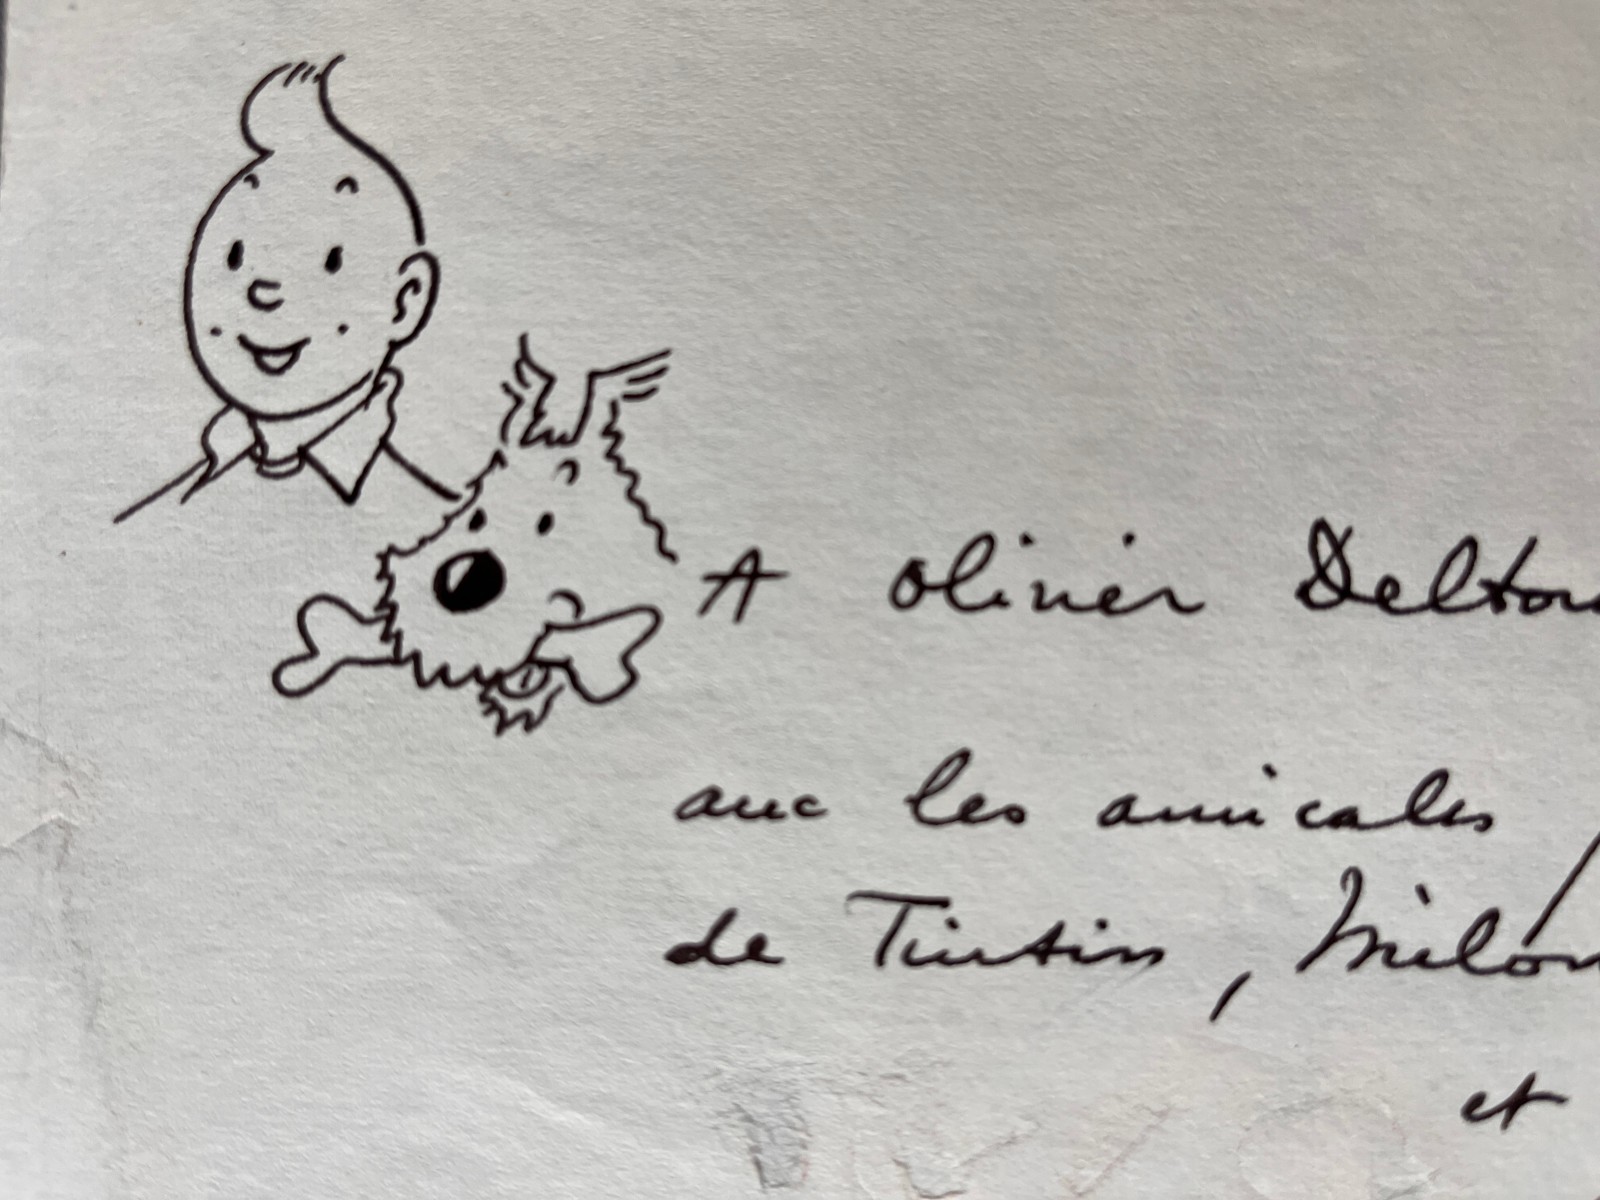 A Olivier Deltou
avec les amicales
de Tintin, Milou
et